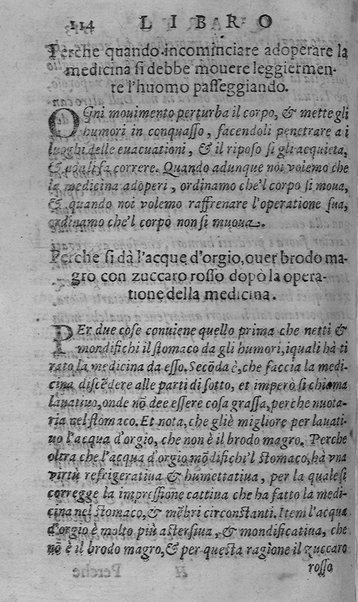 114 LIBRO
Perche quando incominciare adoperare la
medicina si debbe mouere leggiermen-
te l'huomo passeggiando.
OGni mouimento perturba il corpo, & mette gli
humori in conquasso, facendoli penetrare a i
luoghi delle euacuationi, & il riposo si gli acquieta,
& gli fa correre. Quando adunque noi volemo che
la medicina adoperi, ordinamo che'l corpo si moua,
& quando noi volemo raffrenare l'operatione sua,
ordinamo che'l corpo non si muoua.
Perche si dà l'acque d'orgio, ouer brodo ma
gro con zuccaro rosso dopò la opera-
tione della medicina.
PEr due cose conuiene quello prima che netti &
mondifichi il stomaco da gli humori, iquali hà ti
rato la medicina da esso. Secõda è, che faccia la medi-
cina discẽdere alle parti di sotto, et imperò si chiama
lauatiuo, onde nõ dee essere cosa grassa, perche nuota-
ria nel stomaco. Et nota, che gliè migliore per lauati-
uo l'acqua d'orgio, che non è il brodo magro. Perche
oltra che l'acqua d'orgio mõdifichi'l stomaco, hà vna
virtù refrigeratiua & humettatiua, per la qualesi
corregge la impressione cattiua che ha fatto la medi-
cina nel stomaco, & mẽbri circonstanti. Item l'acqua
d'orgio è molto più astersiua, & mondificatiua, che
nõ è il brodo magro, & per questa ragione il zuccaro
rosso